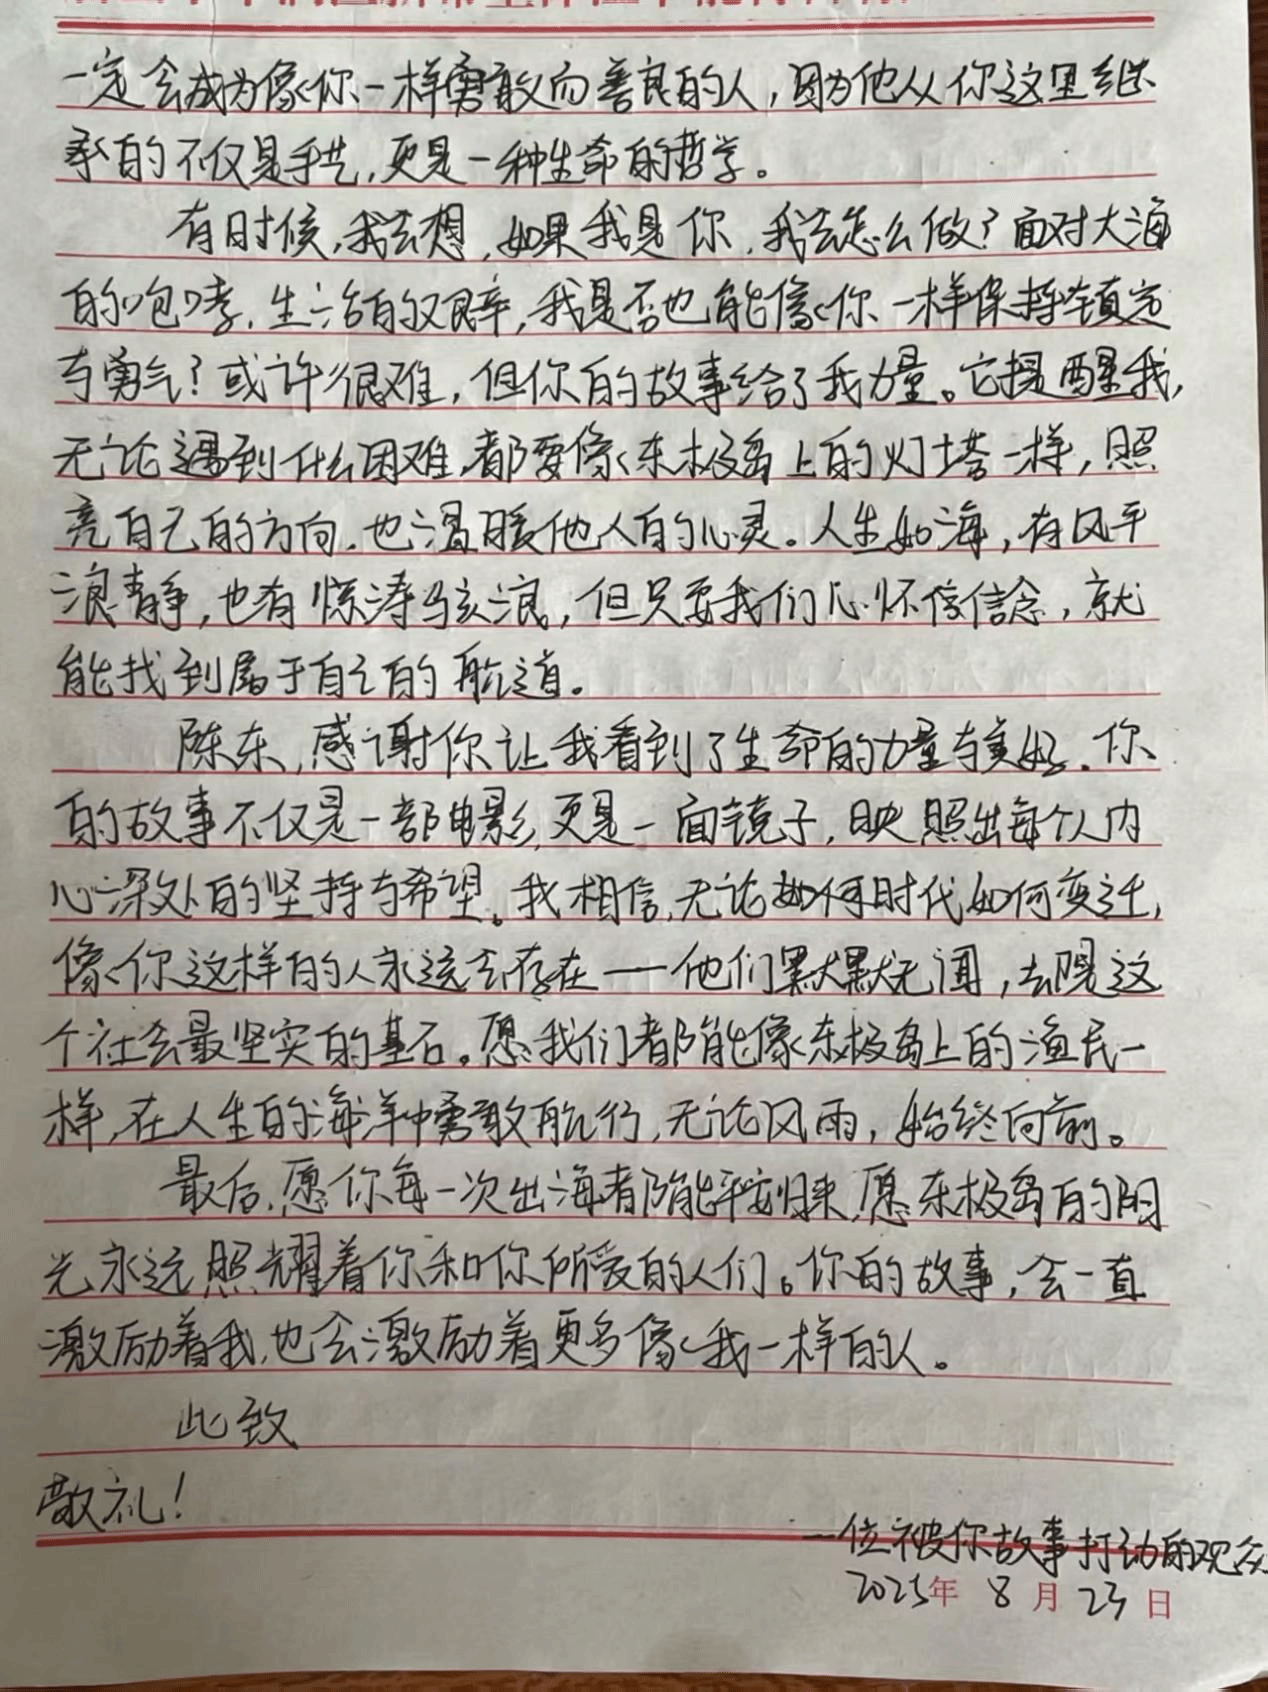 一定会成为像你一样勇敢而善良的人，因为他从你这里继
承的不仅是手艺，更是一种生命的哲学。
有时候，我会想，如果我是你，我会怎么做？面对大海
的咆哮，生活的艰辛，我是否也能像你一样保持镇定
与勇气？或许很难，但你的故事给了我力量。它提醒我，
无论遇到什么困难，都要像东极岛上的灯塔一样，照
亮自己的方向，也温暖他人的心灵。人生如海，有风平
浪静，也有惊涛骇浪，但只要我们心怀信信念，就
能找到属于自己的航道。
陈东，感谢你让我看到了生命的力量与美好。你
的故事不仅是一部电影，更是一面镜子，映照出每个人内
心深处的坚持与希望。我相信，无论如何时代如何变迁，
像你这样的人永远会存在——他们默默无闻，去限这
个社会最坚实的基石。愿我们都能像东极岛上的渔民一
样，在人生的海洋中勇敢航行，无论风雨，始终向前。
最后，愿你每一次出海都能平安归来，愿东极岛的阳
光永远照耀着你和你所爱的人们。你的故事，会一直
激励着我，也会激励着更多像我一样的人。
此致
敬礼！
一位被你故事打动的观众
2025年 8月 23日